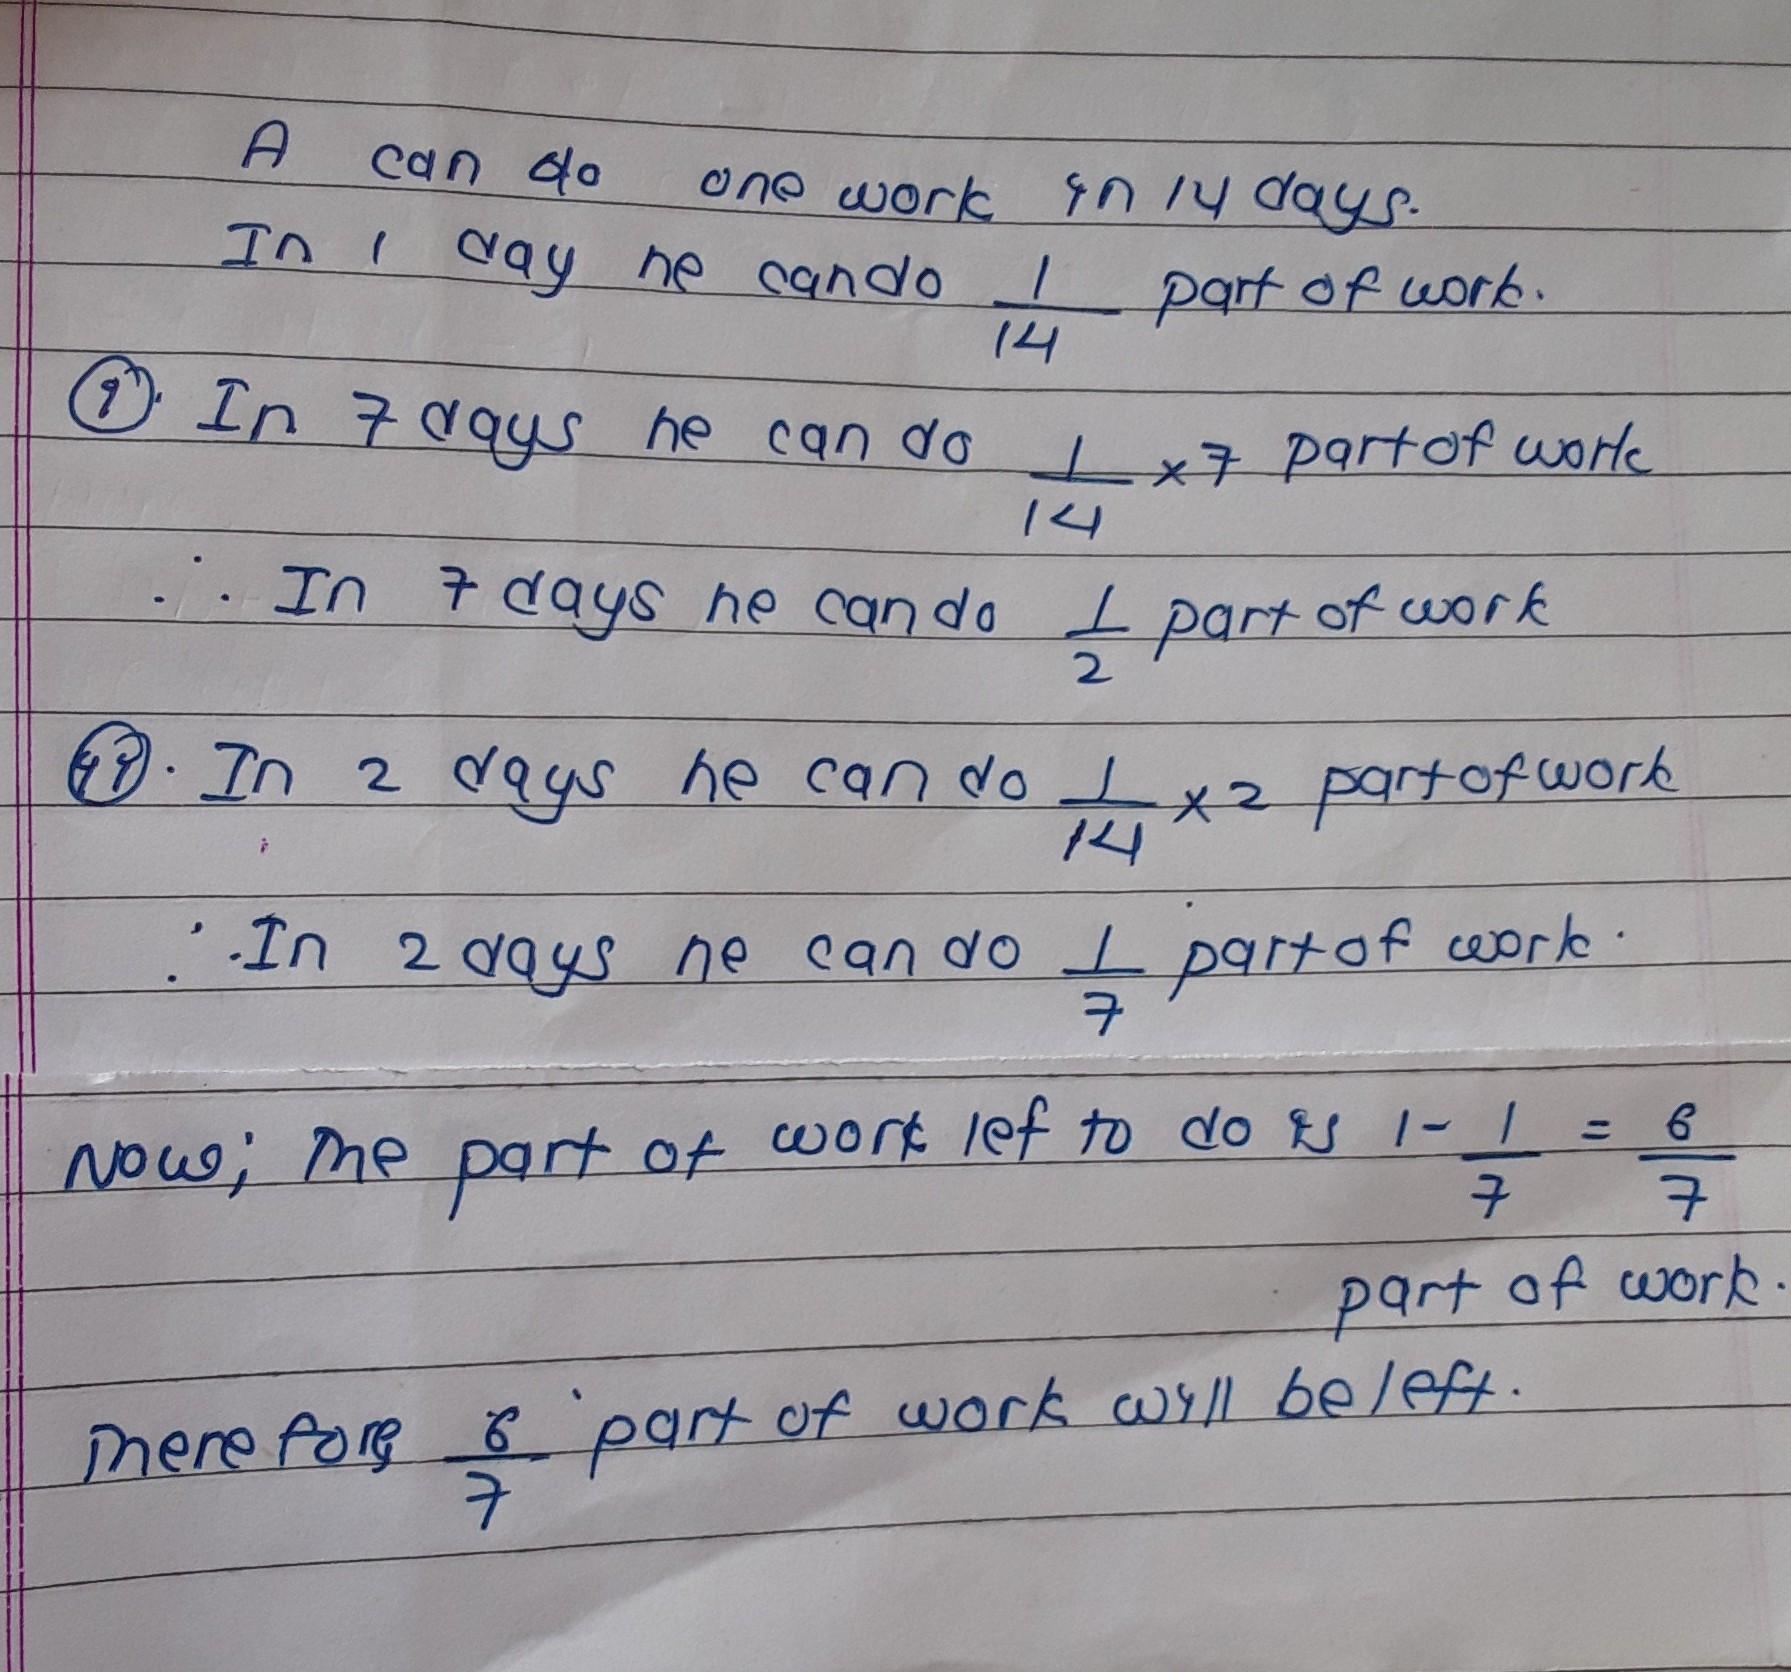 A can do one work in 14 days.
In 1 day he can do 1/14 part of work.
(i). In 7 days he can do 1/14 × 7 part of work
∴ In 7 days he can do 1/2 part of work
(ii). In 2 days he can do 1/14 × 2 part of work
∴ In 2 days he can do 1/7 part of work.
Now; The part of work lef to do is 1 - 1/7 = 6/7
part of work.
Therefore 6/7 part of work will be left.